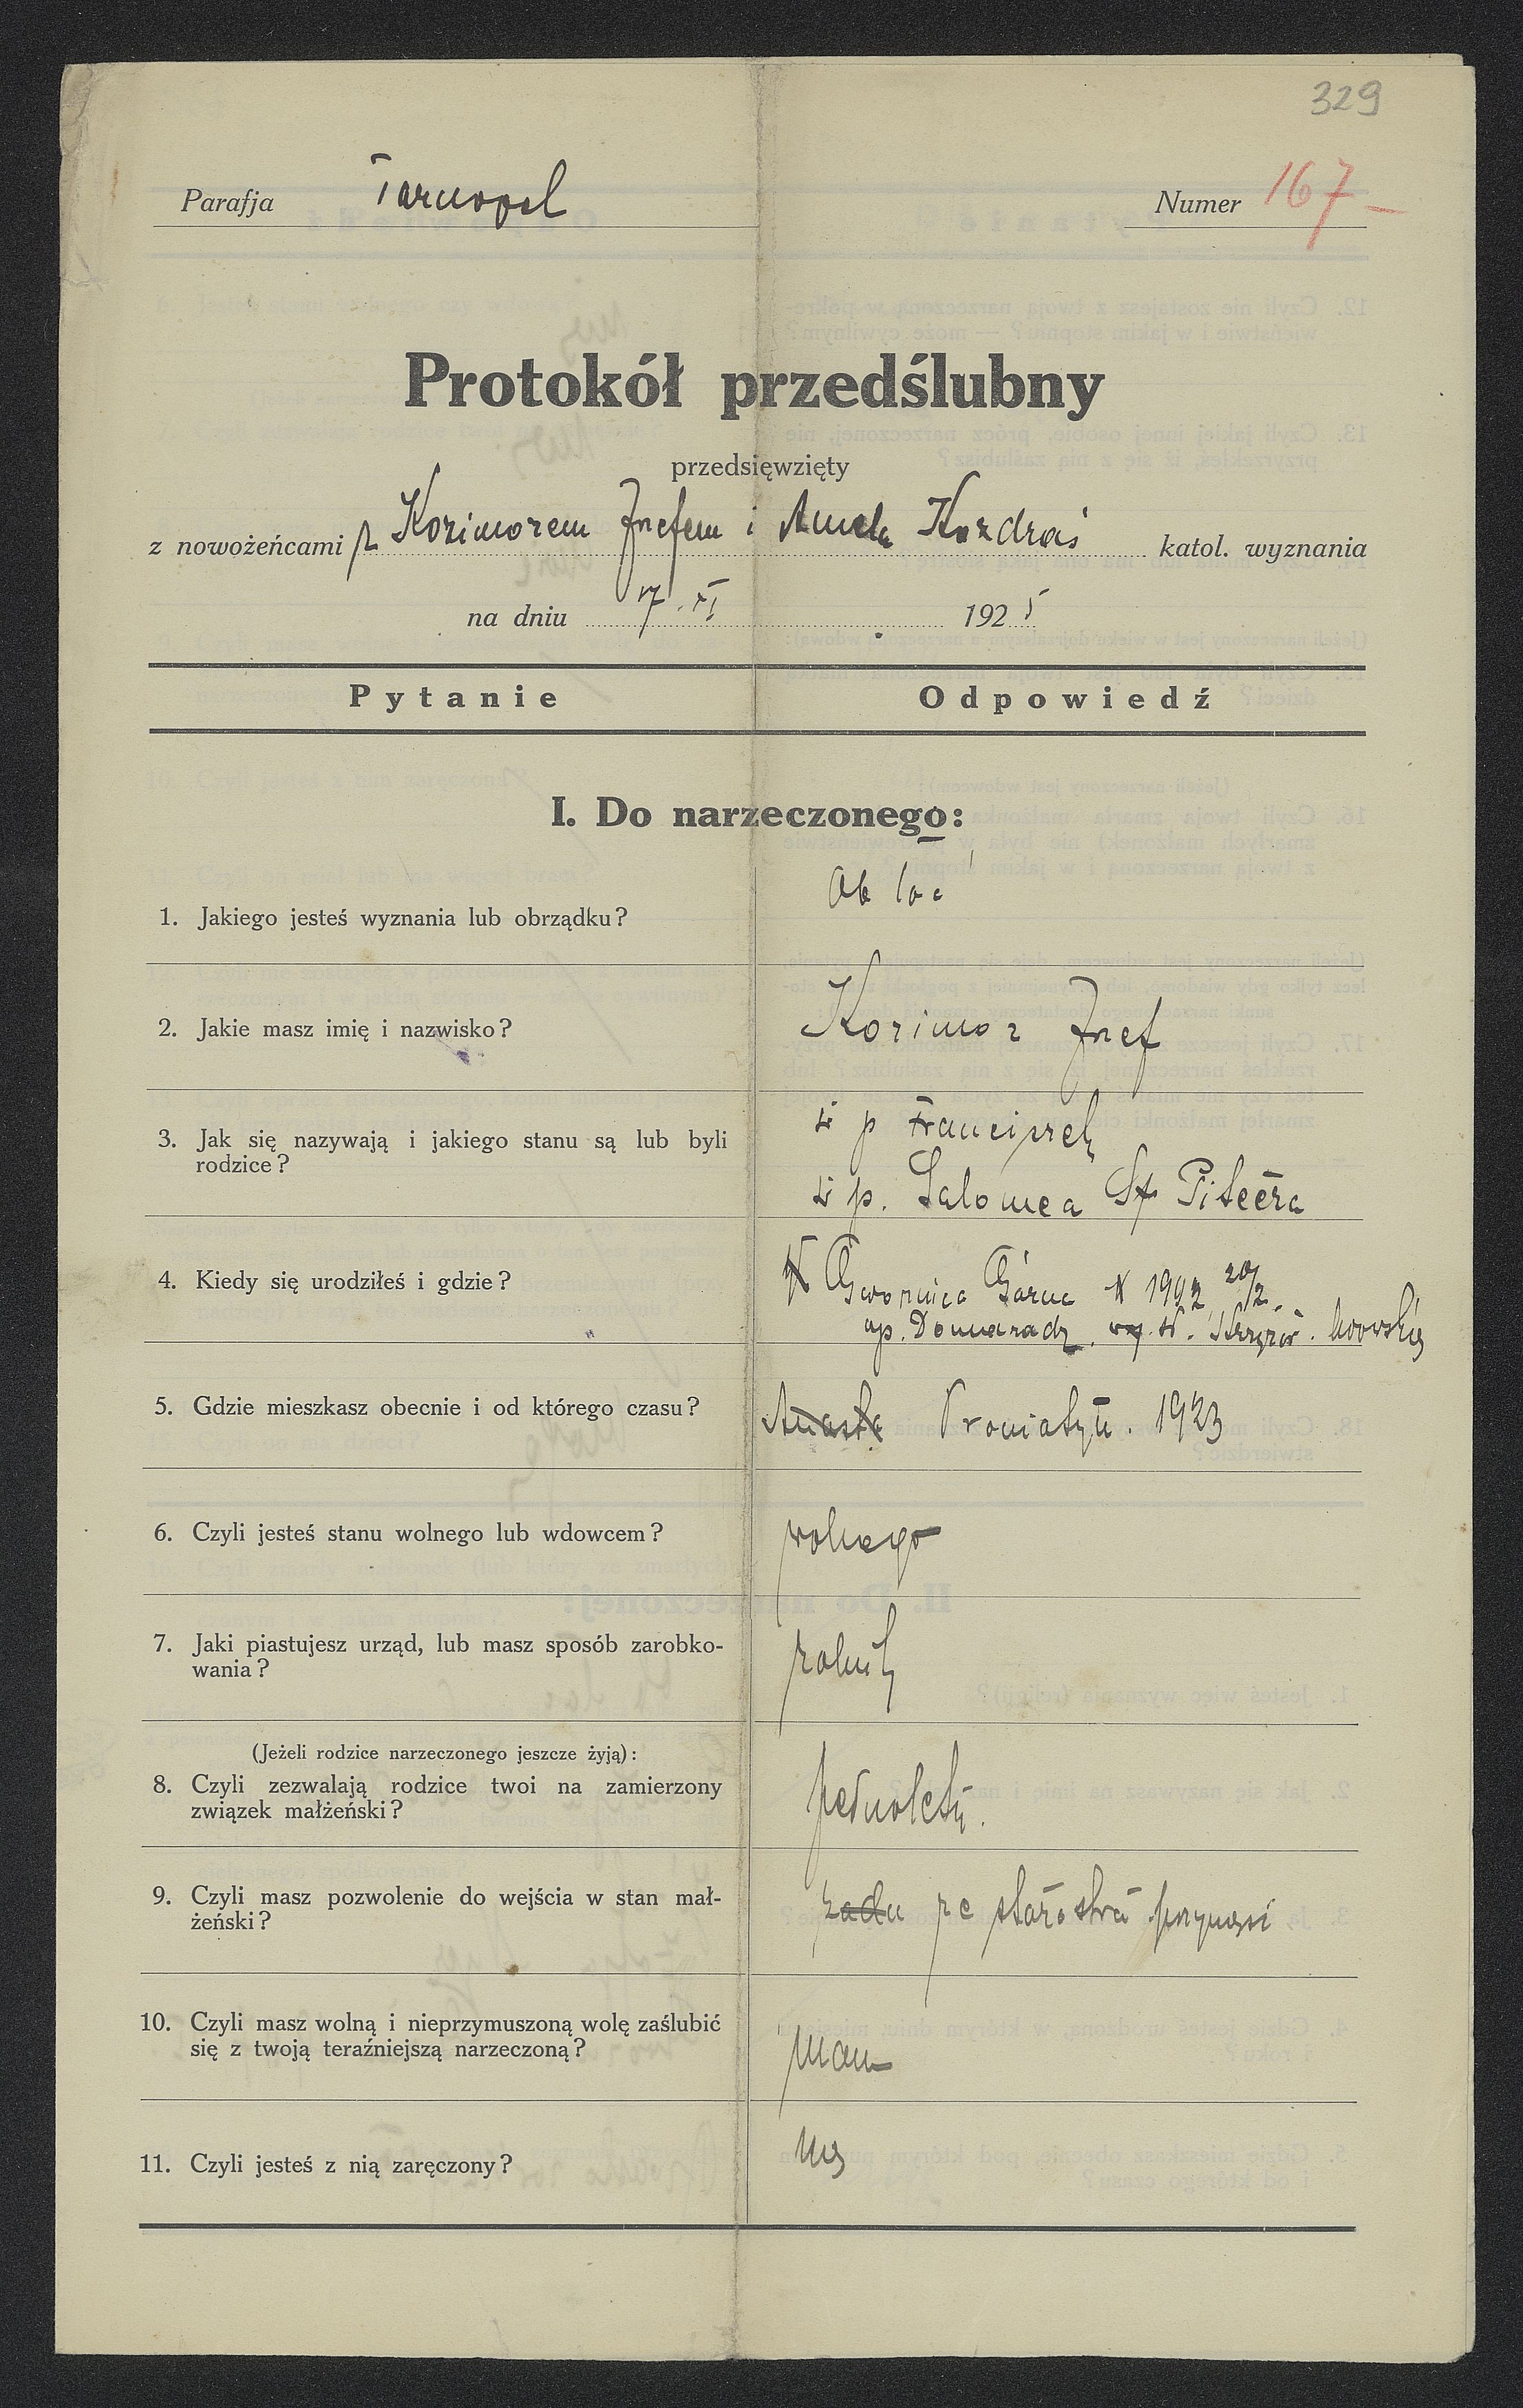 329
Parafja Tarnopol Numer 167
Protokół przedślubny
przedsięwzięty
z nowożeńcami z Kozimorem Józefem i Aniela Kozdraś katol. wyznania
na dniu 17. XI 1925
Pytanie Odpowiedź
I. Do narzeczonego:
1. Jakiego jesteś wyznania lub obrządku? Ob łać
2. Jakie masz imię i nazwisko? Kozimor Józef
3. Jak się nazywają i jakiego stanu są lub byli ś p Franciszek
rodzice?
ś p. Salomea Pitera
4. Kiedy się urodziłeś i gdzie? Gwoźnica Górna 1902 20/2.
up. Domaradz.
5. Gdzie mieszkasz obecnie i od którego czasu? Proniatyn. 1923
6. Czyli jesteś stanu wolnego lub wdowcem? wolnego
7. Jaki piastujesz urząd, lub masz sposób zarobko- rolnik
wania?
(Jeżeli rodzice narzeczonego jeszcze żyją):
8. Czyli zezwalają rodzice twoi na zamierzony pełnoletni.
związek małżeński?
9. Czyli masz pozwolenie do wejścia w stan mał- ze starostwa przynosi
żeński?
10. Czyli masz wolną i nieprzymuszoną wolę zaślubić mam
się z twoją teraźniejszą narzeczoną?
11. Czyli jesteś z nią zaręczony?